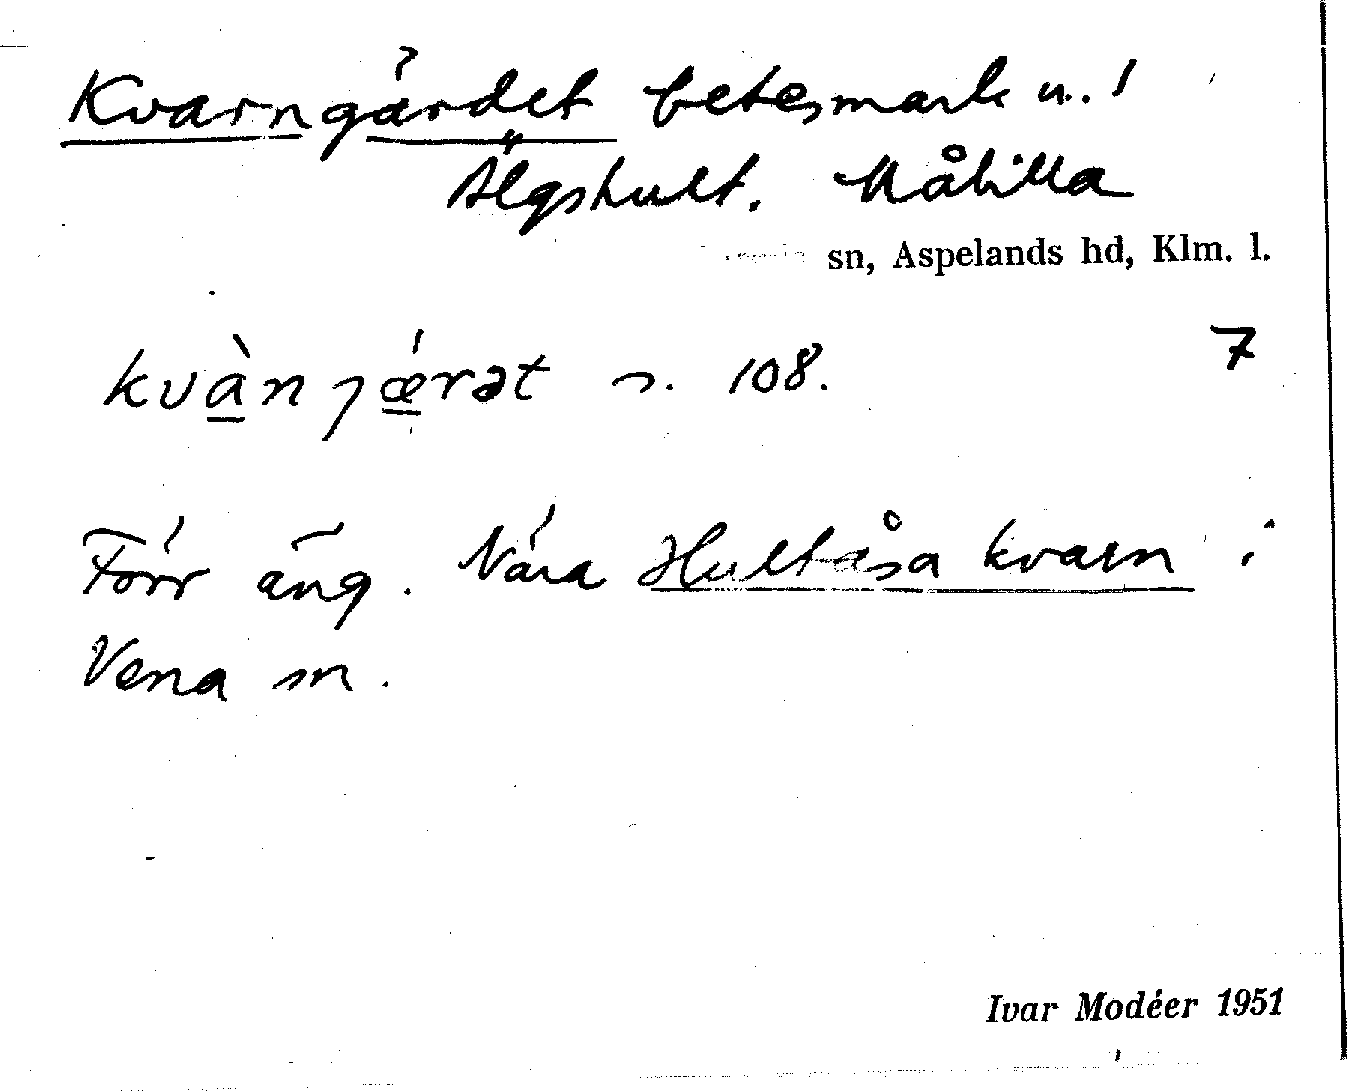 Kvarngärdet betesmark u. l
Älgshult. Målilla
sn, Aspelands hd, Klm. l.
7
kvà̱n ȷǽ̱rət n. 108.
Förr äng. Nära Hultåsa kvarn i
Vena sn.
Ivar Modéer 1951